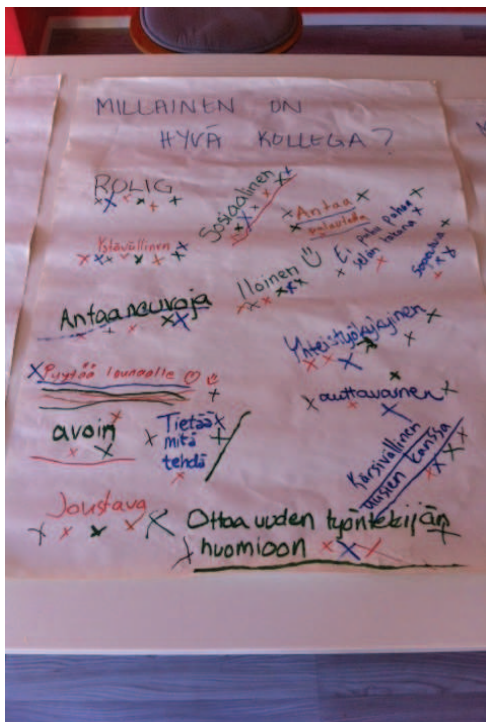 MILLAINEN ON
HYVÄ KOLLEGA?
ROLIG
Sosiaalinen
Antaa
palautetta
Ystävällinen
Iloinen
Ei puhu pahaa
selän takana
Antaa neuvoja
Yhteistyökykyinen
Pyytää lounaalle
auttavainen
avoin
Tietää
mitä
tehdä
Kärsivällinen
uusien kanssa
Joustava
Ottaa uuden työntekijän
huomioon